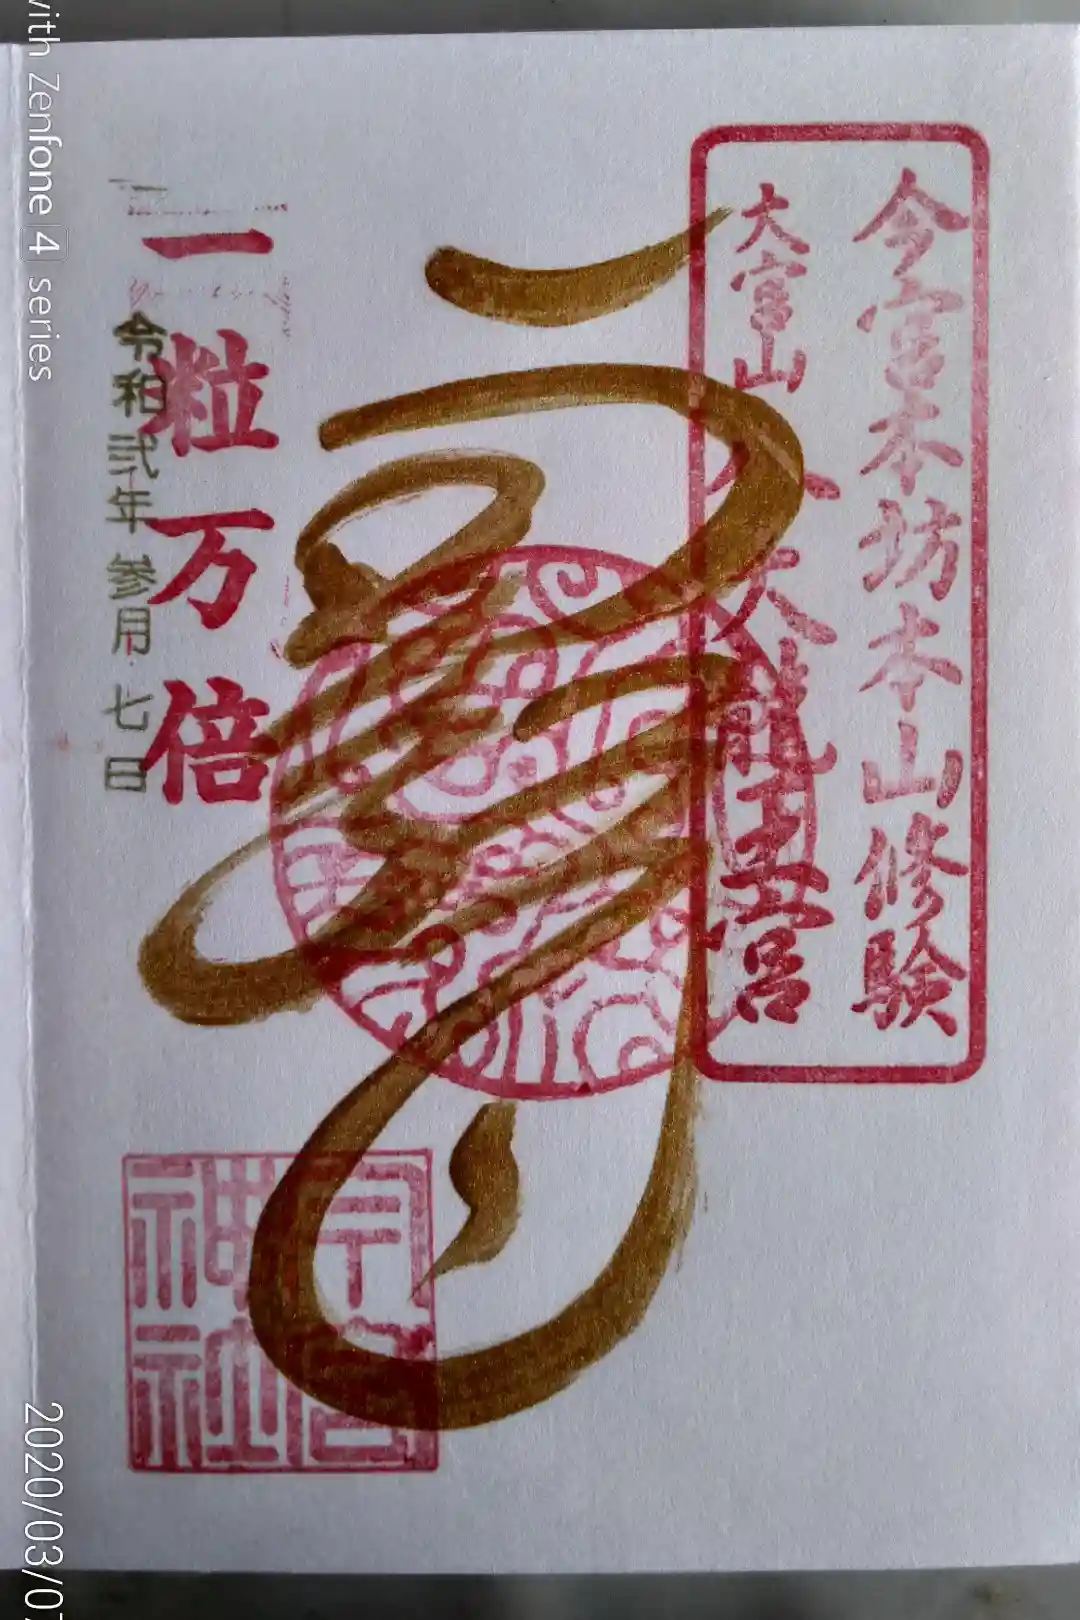 今宮本坊本山修験
大宮山
八大龍王宮
一粒万倍
令和弐年参月七日
今宮神社
with Zenfone 4 series
2020/03/07